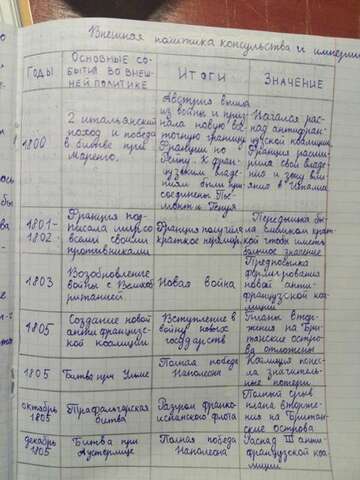 Внешняя политика консульства и импери
Годы
Основные со-
бытия во внеш-
ней политике
Итоги
Значение
1800
2 итальянский
поход и победа
в битве при
Маренго.
Австрия вышла
из войны и приз-
нала новую во-
точную границу
Франции по
Рейну. К фран-
цузским владе-
ниям были при-
соединены Пье-
монт и Генуя
Начался рас-
пад антифран-
цузской коалиции
Франция расши-
рила свои владе-
ния и зону вли-
яния в Италии
1801-
1802
Франция под-
писала мир со
всеми своими
противниками
Франция получила
краткое перемирие
Передышка бы-
ла слишком крат-
кой чтобы иметь
большое значение
1803
Возобновление
войны с Велико-
британией
Новая война
Предпосылка
формирования
новой анти-
французской ко-
алиции
1805
Создание новой
антифранцузс-
кой коалиции
Вступление в
войну новых
государств
Планы втор-
жения на Бри-
танские остро-
ва отложены
1805
Битва при Ульме
Полная победа
Наполеона
Коалиция поне-
сла значитель-
ные потери
октябрь
1805
Трафальгарская
битва
Разгром франко-
испанского флота
Полный срыв
плана вторже-
ния на Бри-
танские острова
декабрь
1805
Битва при
Аустерлице
Полная победа
Наполеона
Распад III анти-
французской коа-
лиции